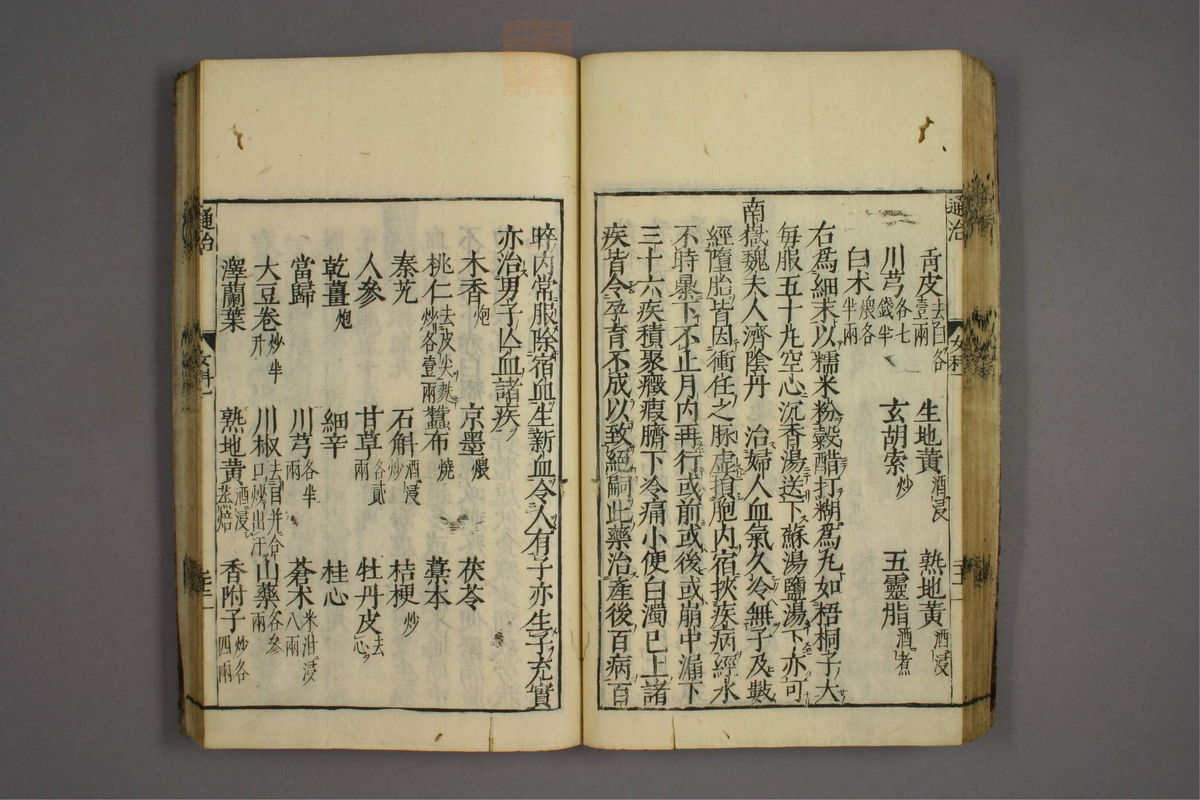 通治
靑皮去白各壹兩 生地黃酒浸 熟地黃酒浸
川芎各七錢半 玄胡索炒 五靈脂酒煮
白术煨各半兩
右爲細末以糯米粉穀醋打糊爲丸如梧桐子大
每服五十丸空心沉香湯送下蘇湯鹽湯下亦可
南嶽魏夫人濟陰丹 治婦人血氣久冷無子及數
經墮胎皆因衝任之脉虛損胞内宿挾疾病經水
不時暴下不止月内再行或前或後或崩中漏下
三十六疾積聚癥瘕臍下冷痛小便白濁已上諸
疾皆令孕育不成以致絕嗣此藥治產後百病百
晬内常服除宿血生新血令人有子亦生子充實
亦治男子亡血諸疾
木香炮 京墨煨 茯苓
桃仁去皮尖麩炒各壹兩 蠶布燒 藁本
秦艽 石斛酒浸炒 桔梗炒
人參 甘草各貳兩 牡丹皮去心
乾薑炮 細辛 桂心
當歸 川芎各半兩 蒼术米泔浸八兩
大豆卷炒半升 川椒去目并合口炒出汗 山藥各參兩
澤蘭葉 熟地黃酒浸蒸焙 香附子炒各四兩
通治
女科一